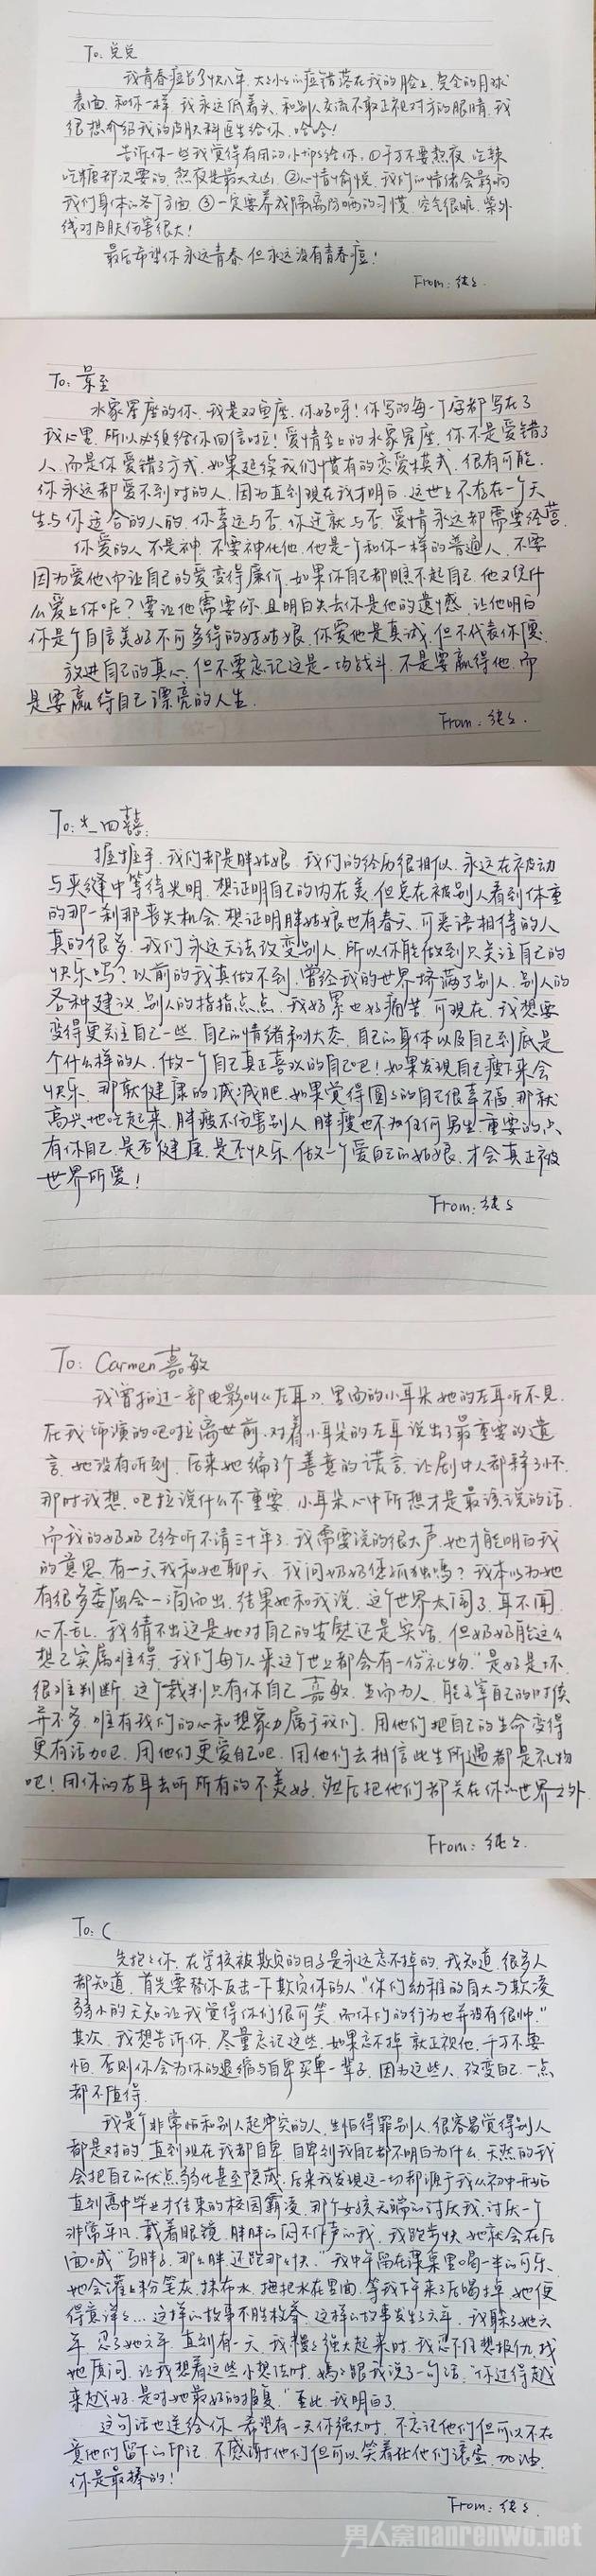 To: 兑兑
我青春痘长了快八年,大大小小的痘错落在我的脸上,完全的月球
表面,和你一样,我永远低着头,和别人交流不敢正视对方的眼睛,我
很想介绍我的皮肤科医生给你,哈哈!
告诉你一些我觉得有用的小tips给你,①千万不要熬夜,吃辣
吃糖都次要的,熬夜是最大元凶,②心情愉悦,我们的情绪会影响
我们身体的各个方面 ③一定要养成隔离防晒的习惯,空气很脏,紫外
线对皮肤伤害很大!
最后希望你永远青春,但永远没有青春痘!
From: 纯纯
To: 景至
水象星座的你,我是双鱼座,你好呀!你写的每一个字都写在了
我心里,所以必须给你回信啦!爱情至上的水象星座,你不是爱错了
人,而是你爱错了方式,如果延续我们惯有的恋爱模式,很有可能,
你永远都爱不到对的人,因为直到现在我才明白,这世上不存在一个天
生与你适合的人的,你幸运与否,你迁就与否,爱情永远都需要经营.
你爱的人不是神,不要神化他,他是一个和你一样的普通人,不要
因为爱他而让自己的爱变得廉价,如果你自己都瞧不起自己,他又凭什
么爱上你呢?要让他需要你,且明白失去你是他的遗憾,让他明白
你是个自信美好不可多得的好姑娘,你爱他是真诚,但不代表你傻.
放进自己的真心,但不要忘记这是一场战斗,不是要赢得他,而
是要赢得自己漂亮的人生.
From: 纯纯.
To: 四囍:
握握手,我们都是胖姑娘,我们的经历很相似,永远在被动
与夹缝中等待光明,想证明自己的内在美,但总在被别人看到体重
的那一刹那丧失机会,想证明胖姑娘也有春天,可恶语相待的人
真的很多,我们永远无法改变别人,所以你能做到只关注自己的
快乐吗?以前的我真做不到,曾经我的世界挤满了别人,别人的
各种建议,别人的指指点点,我好累也好痛苦,可现在,我想要
变得更关注自己一些,自己的情绪和状态,自己的身体以及自己到底是
个什么样的人,做一个自己真正喜欢的自己吧!如果发现自己瘦下来会
快乐,那就健康的减减肥,如果觉得圆圆的自己很幸福,那就
高兴地吃起来,胖瘦不伤害别人,胖瘦也不为任何男生,重要的只
有你自己,是否健康,是否快乐,做一个爱自己的姑娘,才会真正被
世界所爱!
From: 纯纯
To: Carmen嘉敏
我曾拍过一部电影叫《左耳》,里面的小耳朵她的左耳听不见,
在我饰演的吧啦离世前,对着小耳朵的左耳说出了最重要的遗
言,她没有听到,后来她编了个善意的谎言,让剧中人都释了怀,
那时我想,吧拉说什么不重要,小耳朵心中所想才是最该说的话,
而我的奶奶已经听不清三十年了,我需要说的很大声,她才能明白我
的意思,有一天我和她聊天,我问奶奶您孤独吗?我本以为她
有很多委屈会一涌而出,结果她和我说,这个世界太闹了,耳不闻,
心不乱,我猜不出这是她对自己的安慰还是实话,但奶奶能这么
想已实属难得,我们每个人来这个世上都会有一份“礼物”,是好是坏
很难判断,这个裁判只有你自己,嘉敏,生而为人,能主宰自己的时候
并不多,唯有我们的心和想象力属于我们,用他们把自己的生命变得
更有活力吧,用他们更爱自己吧,用他们去相信此生所遇都是礼物
吧!用你的右耳去听所有的不美好,然后把他们都关在你的世界之外.
From: 纯纯.
To: C
先抱抱你,在学校被欺负的日子是永远忘不掉的,我知道,很多人
都知道,首先要替你反击一下欺负你的人“你们幼稚的自大与欺凌
弱小的无知让我觉得你们很可笑,而你们的行为也并没有很帅.”
其次,我想告诉你,尽量忘记这些,如果忘不掉,就正视他,千万不要
怕,否则你会为你的退缩与自卑买单一辈子,因为这些人,改变自己,一点
都不值得.
我是个非常怕和别人起冲突的人,生怕得罪别人,很容易觉得别人
都是对的,直到现在我都自卑,自卑到我自己都不明白为什么,天然的我
会把自己的优点弱化甚至隐藏,后来我发现这一切都源于我从初中开始
直到高中毕业才结束的校园霸凌,那个女孩无端的讨厌我,讨厌一个
非常平凡,戴着眼镜,胖胖的闷不作声的我,我跑步快,她就会在后
面喊“马胖子,那么胖,还跑那么快,”我中午留在课桌里喝一半的可乐,
她会灌上粉笔灰,抹布水,拖把水在里面,等我下午来了后喝掉,她便
得意洋洋...这样的故事不胜枚举,这样的故事发生了六年,我躲了她六
年,忍了她六年,直到有一天,我慢慢强大起来时,我忍不住想报仇,找
她质问,让我想着这些小想法时,妈妈跟我说了一句话,“你过得越
来越好,是对她最好的报复,”至此,我明白了.
这句话也送给你,希望有一天你强大时,不忘记他们但可以不在
意他们留下的印记,不感谢他们但可以笑着让他们滚蛋,加油,
你是最棒的!
From: 纯纯.
男人窝nanrenwo.net